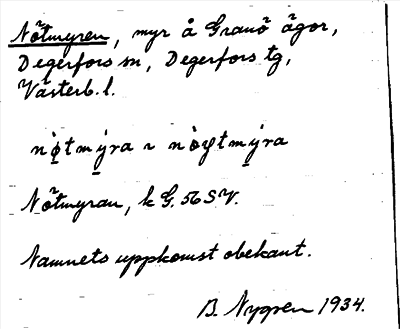 Nötmyren, myr å Granö ägor,
Degerfors sn, Degerfors tg,
Västerb. l.
nø̀tmýra ~ nòφtmýra
Nötmyran, k G. 56 SV.
Namnets uppkomst obekant.
B. Nygren 1934.